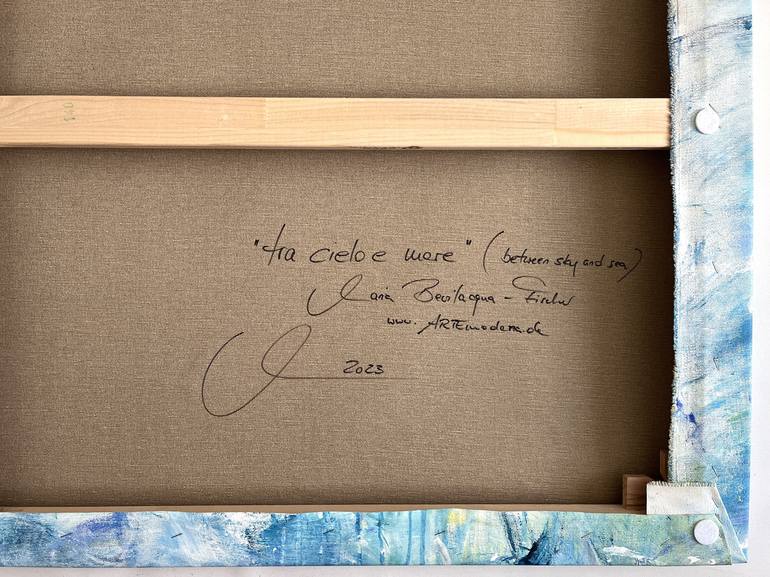 "tra cielo e mare" (between sky and sea)
Maria Bevilacqua - Fischer
www.ARTEmoderna.de
2023